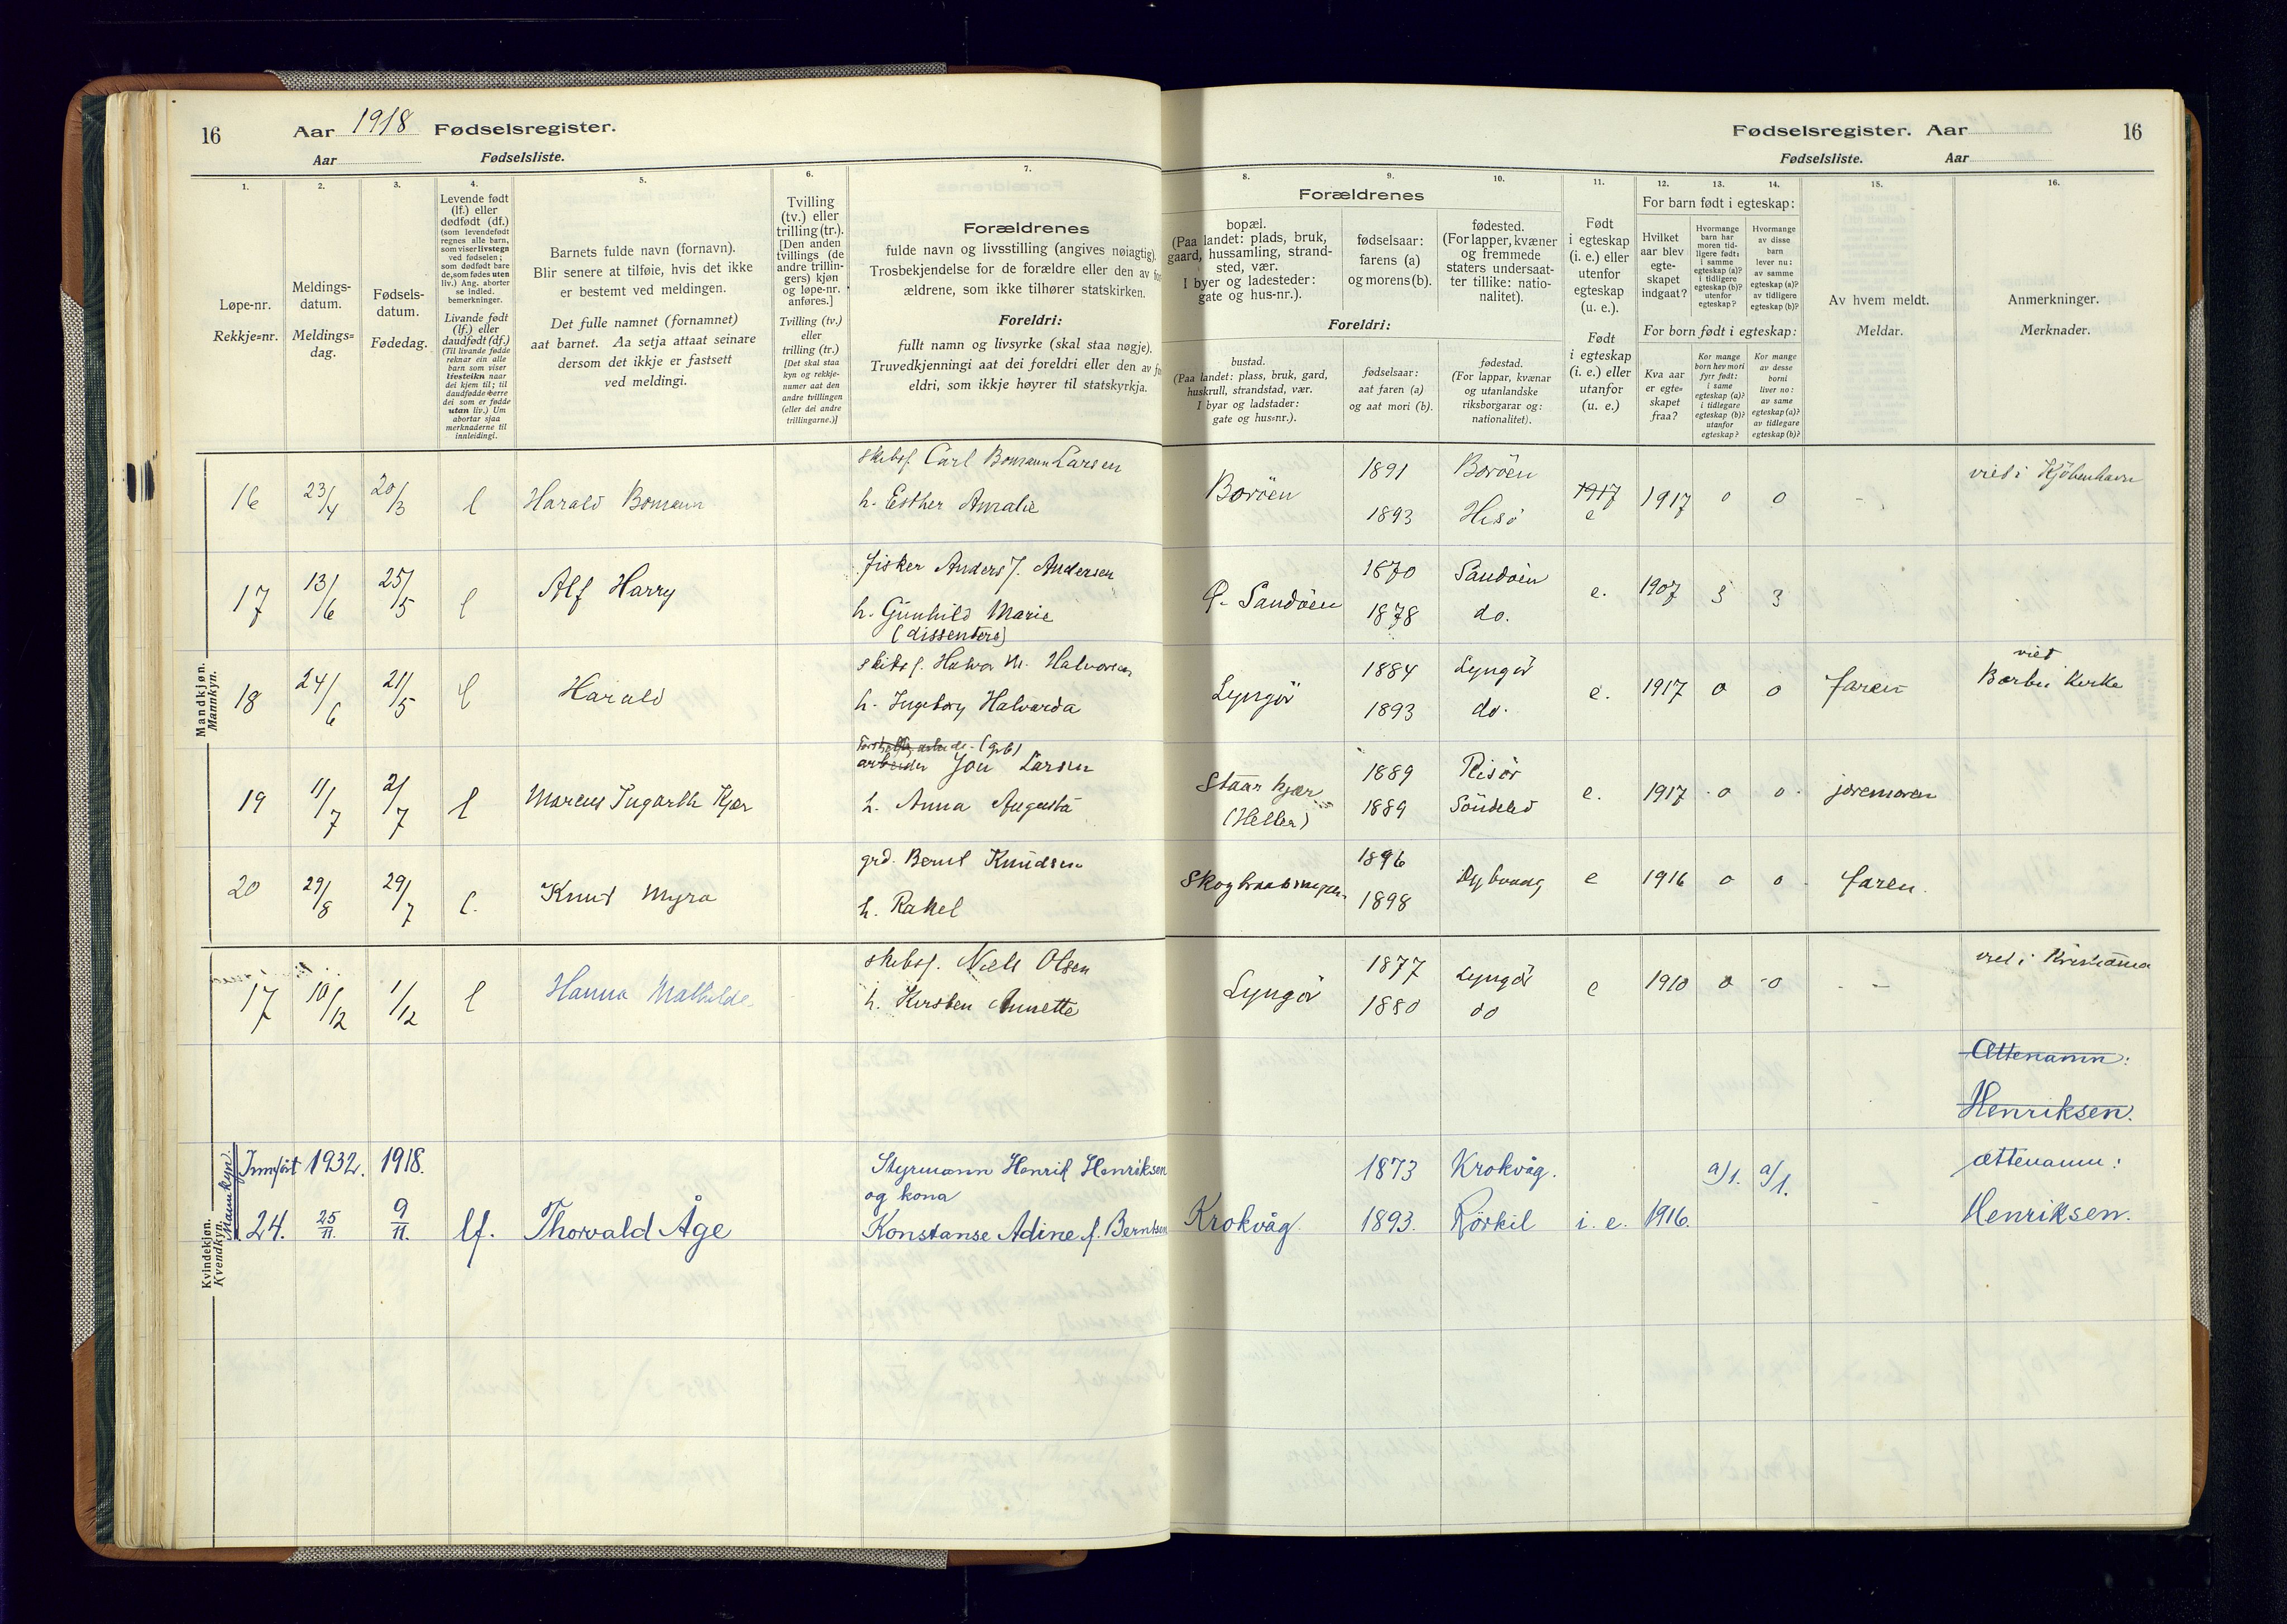 16
Aar 1918 Fødselsregister.
Aar Fødselsliste.
Fødselsregister. Aar
16
Fødselsliste. Aar
1.
Løpe-nr.
Rekkje=nr.
2.
Meldings-
datum.
Meldings=
dag.
3.
Fødsels-
datum.
Fødedag.
4.
Levende født
(lf.) eller
dødfødt (df.)
(som levendefødt
regnes alle barn,
som viser livstegn
ved fødselen;
som dødfødt bare
de, som fødes uten
liv.) Ang. aborter
se indled.
bemerkninger.
Livande født
(lf.) eller
daudfødt (df.)
(Til livande fødde
reknar ein alle
barn som viser
livsteikn naar
dei kjem til; til
daudfødde berre
dei som er fødde
utan liv.) Um
abortar sjaa
merknaderne til
innleidingi.
5.
Barnets fulde navn (fornavn).
Blir senere at tilføie, hvis det ikke
er bestemt ved meldingen.
Det fulle namnet (fornamnet)
aat barnet. Aa setja attaat seinare
dersom det ikkje er fastsett
ved meldingi.
6.
Tvilling
(tv.) eller
trilling (tr.).
[Den anden
tvillings (de
andre trillin-
gers) kjøn
og løpe-nr.
anføres.]
Tvilling (tv.)
eller
trilling (tr.)
[Det skal staa
kyn og rekkje-
numer aat den
andre tvillingen
(eller dei andre
trillingarne.)]
7.
Forældrenes
fulde navn og livsstilling (angives nøiagtig).
Trosbekjendelse for de forældre eller den av
ældrene, som ikke tilhører statskirken.
Foreldri:
fullt namn og livsyrke (skal staa nøgje).
Truvedkjenningi aat dei foreldri eller den av
eldri, som ikkje høyrer til statskyrkja.
8.
9.
10.
Forældrenes
bopæl.
(Paa landet: plads, bruk,
gaard, hussamling, strand-
sted, vær.
I byer og ladesteder:
gate og hus-nr.).
fødselsaar:
farens (a)
og morens (b).
fødested.
(For lapper, kvæner
og fremmede
staters undersaat-
ter tillike: natio-
nalitet).
Foreldri:
bustad.
(Paa landet: plass, bruk, gard,
huskrull, strandstad, vær.
I byar og ladstader:
gate og hus=nr.).
fødselsaar:
aat faren (a)
og aat mori (b).
fødestad.
(For lappar, kvænar
og utanlandske
riksborgarar og:
nationalitet).
11.
Født
i egteskap
(i. e.) eller
utenfor
egteskap
(u. e.).
Født
i egteskap
(i. e.) eller
utanfor
(u. e.)
12.
13.
14.
For barn født i egteskap:
Hvilket
aar blev
egte-
skapet
indgaat?
Hvormange
barn har
moren tid-
ligere født:
i samme
egteskap (a)?
i tidligere
egteskap (b)?
utenfor
egteskap?
Hvormange
av disse
barn
lever nu:
av samme
egteskap (a)?
av tidligere
egteskap (b)?
For born født i egteskap:
Kva aar
er egte=
skapet
fraa?
Kor mange
born hev mori
fyrr født:
i same
egteskap (a)?
i tidlegare
egteskap (b)?
utanfor
egteskap?
Kor mange
av desse
borni
liver no:
av same
egteskap (a)?
av tidlegare
egteskap (b)?
15.
Av hvem meldt.
Meldar.
16.
Anmerkninger.
Merknader.
Mandkjøn.
Mannkyn.
16 23/4 20/3 l Harald Bomann
skibsf. Carl Bomann Larsen
h. Esther Amalie
Borøen 1891 Borøen
1893 Hisø
1917
e 1917 0 0 -
viet i Kjøbenhavn
17 13/6 25/5 l Alf Harry
fisker Anders J. Andersen
h. Gunhild Marie
(dissentere)
Sandøen 1870 Sandøen
1878 do.
e. 1907 3 3
18 24/6 21/5 l Harald
skibsf. Halvor M. Halvorsen
h. Ingeborg Halvarda
Lyngør 1884 Lyngør
1893 do.
e. 1917 0 0 faren
viet
Barbu Kirke
19 11/7 2/7 l Marcus Ingarth Kjær
(grb)
arbeider Jon Larsen
h. Anna Augusta
Staarkjær
(Heller)
1889 Risør
1889 Søndeled
e. 1917 0 0 jordmoren
20 29/8 29/7 l. Knut Myra
grd. Bernt Knudsen
h. Rakel
1896
1898
Dybvaag e 1916 0 0 faren.
Kvindekjøn.
Kvendkyn.
17 10/12 1/12 l Hanna Mathilde
skibsf. Niels Olsen
h. Kirsten Annette
Lyngør 1877 Lyngør
1880 do
e 1910 0 0 -
viet i Kristiania
Ættenamn:
Henriksen.
Mannkyn.
Innført 1932. 1918.
24. 25/11. 9/11. lf. Thorvald Åge
Styrmann Henrik Henriksen
og kona
Konstanse Adine f. Berntsen
Krokvåg. 1873 Krokvåg.
1893. Rörkil i. e. 1916.
a/1. a/1.
ættenamn:
Henriksen.